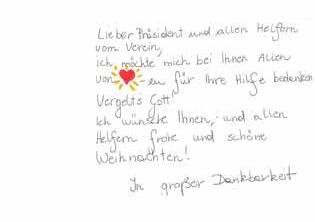 Lieber Präsident und allen Helfern
vom Verein,
ich möchte mich bei Ihnen Allen
von ❤ en für Ihre Hilfe bedanken
Vergelts Gott!
Ich wünsche Ihnen, und allen
Helfern frohe und schöne
Weihnachten!
In großer Dankbarkeit